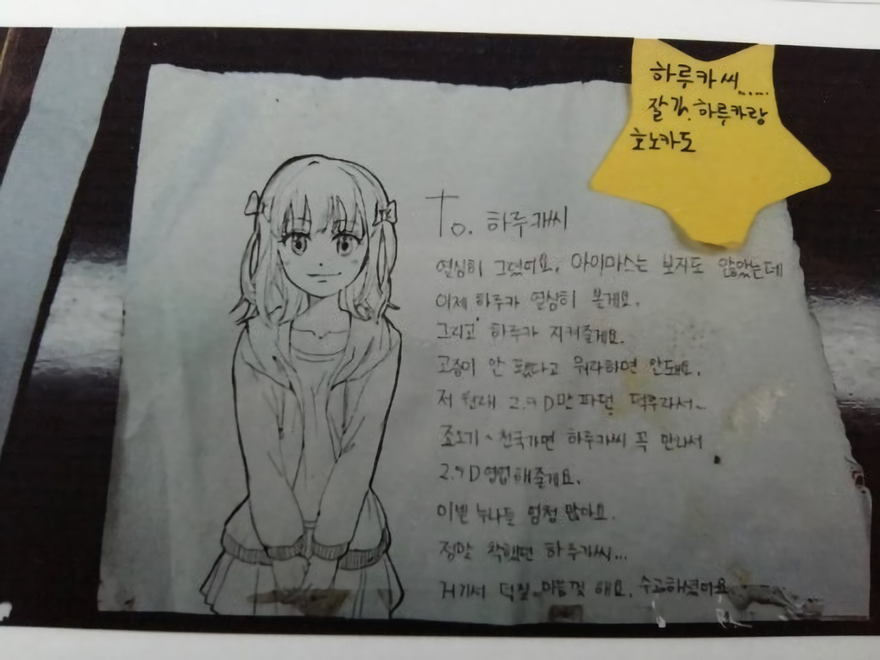 하루카씨......
잘가. 하루카랑
호노카도
To. 하루캐씨
열심히 그렸어요. 아이마스는 보지도 않았는데
이제 하루카 열심히 볼게요.
그리고 하루카 지켜줄게요.
고증이 안 됐다고 뭐라하면 안돼요.
저 원래 2.9D만 파던 덕후라서~
조오기~ 천국가면 하루카씨 꼭 만나서
2.9D영업해줄게요.
이쁜 누나들 엄청 많아요.
정말 착했던 하루카씨...
거기서 덕질 마음껏 해요. 수고하셨어요